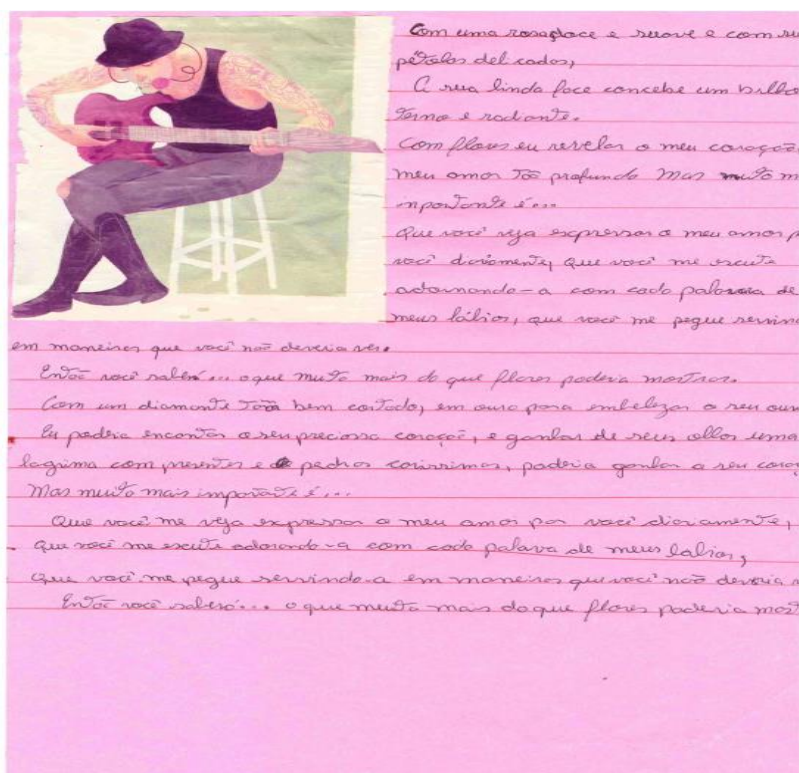 Com uma rosa doce e suave e com su
pétalas delicadas,
A sua linda face concebe um brilho
terno e radiante.
Com flores eu revelar o meu coração
meu amor tão profundo Mas muito m
inportante é...
Que você veja expressar o meu amor p
você diariamente, que você me escute
adornando-a com cada palavra de
meus lábios, que você me pegue servind
em maneiras que você não deveria ver.
Então você saberá... o que muito mais do que flores poderia mostrar.
Com um diamante tão bem cortado, em ouro para embelezar o seu our
Eu poderia encontar o seu preciosa coração, e ganhar de seus olhos uma
lagrima com presentes e pedras caríssimas, poderia ganhar a seu coraç
Mas muito mais importante é...
Que você me veja expressar o meu amor por você diariamente,
que você me escute adorando-a com cada palavra de meus labios,
que você me pegue servindo-a em maneiras que você não deveria v
Então você saberá... o que muito mais do que flores poderia most